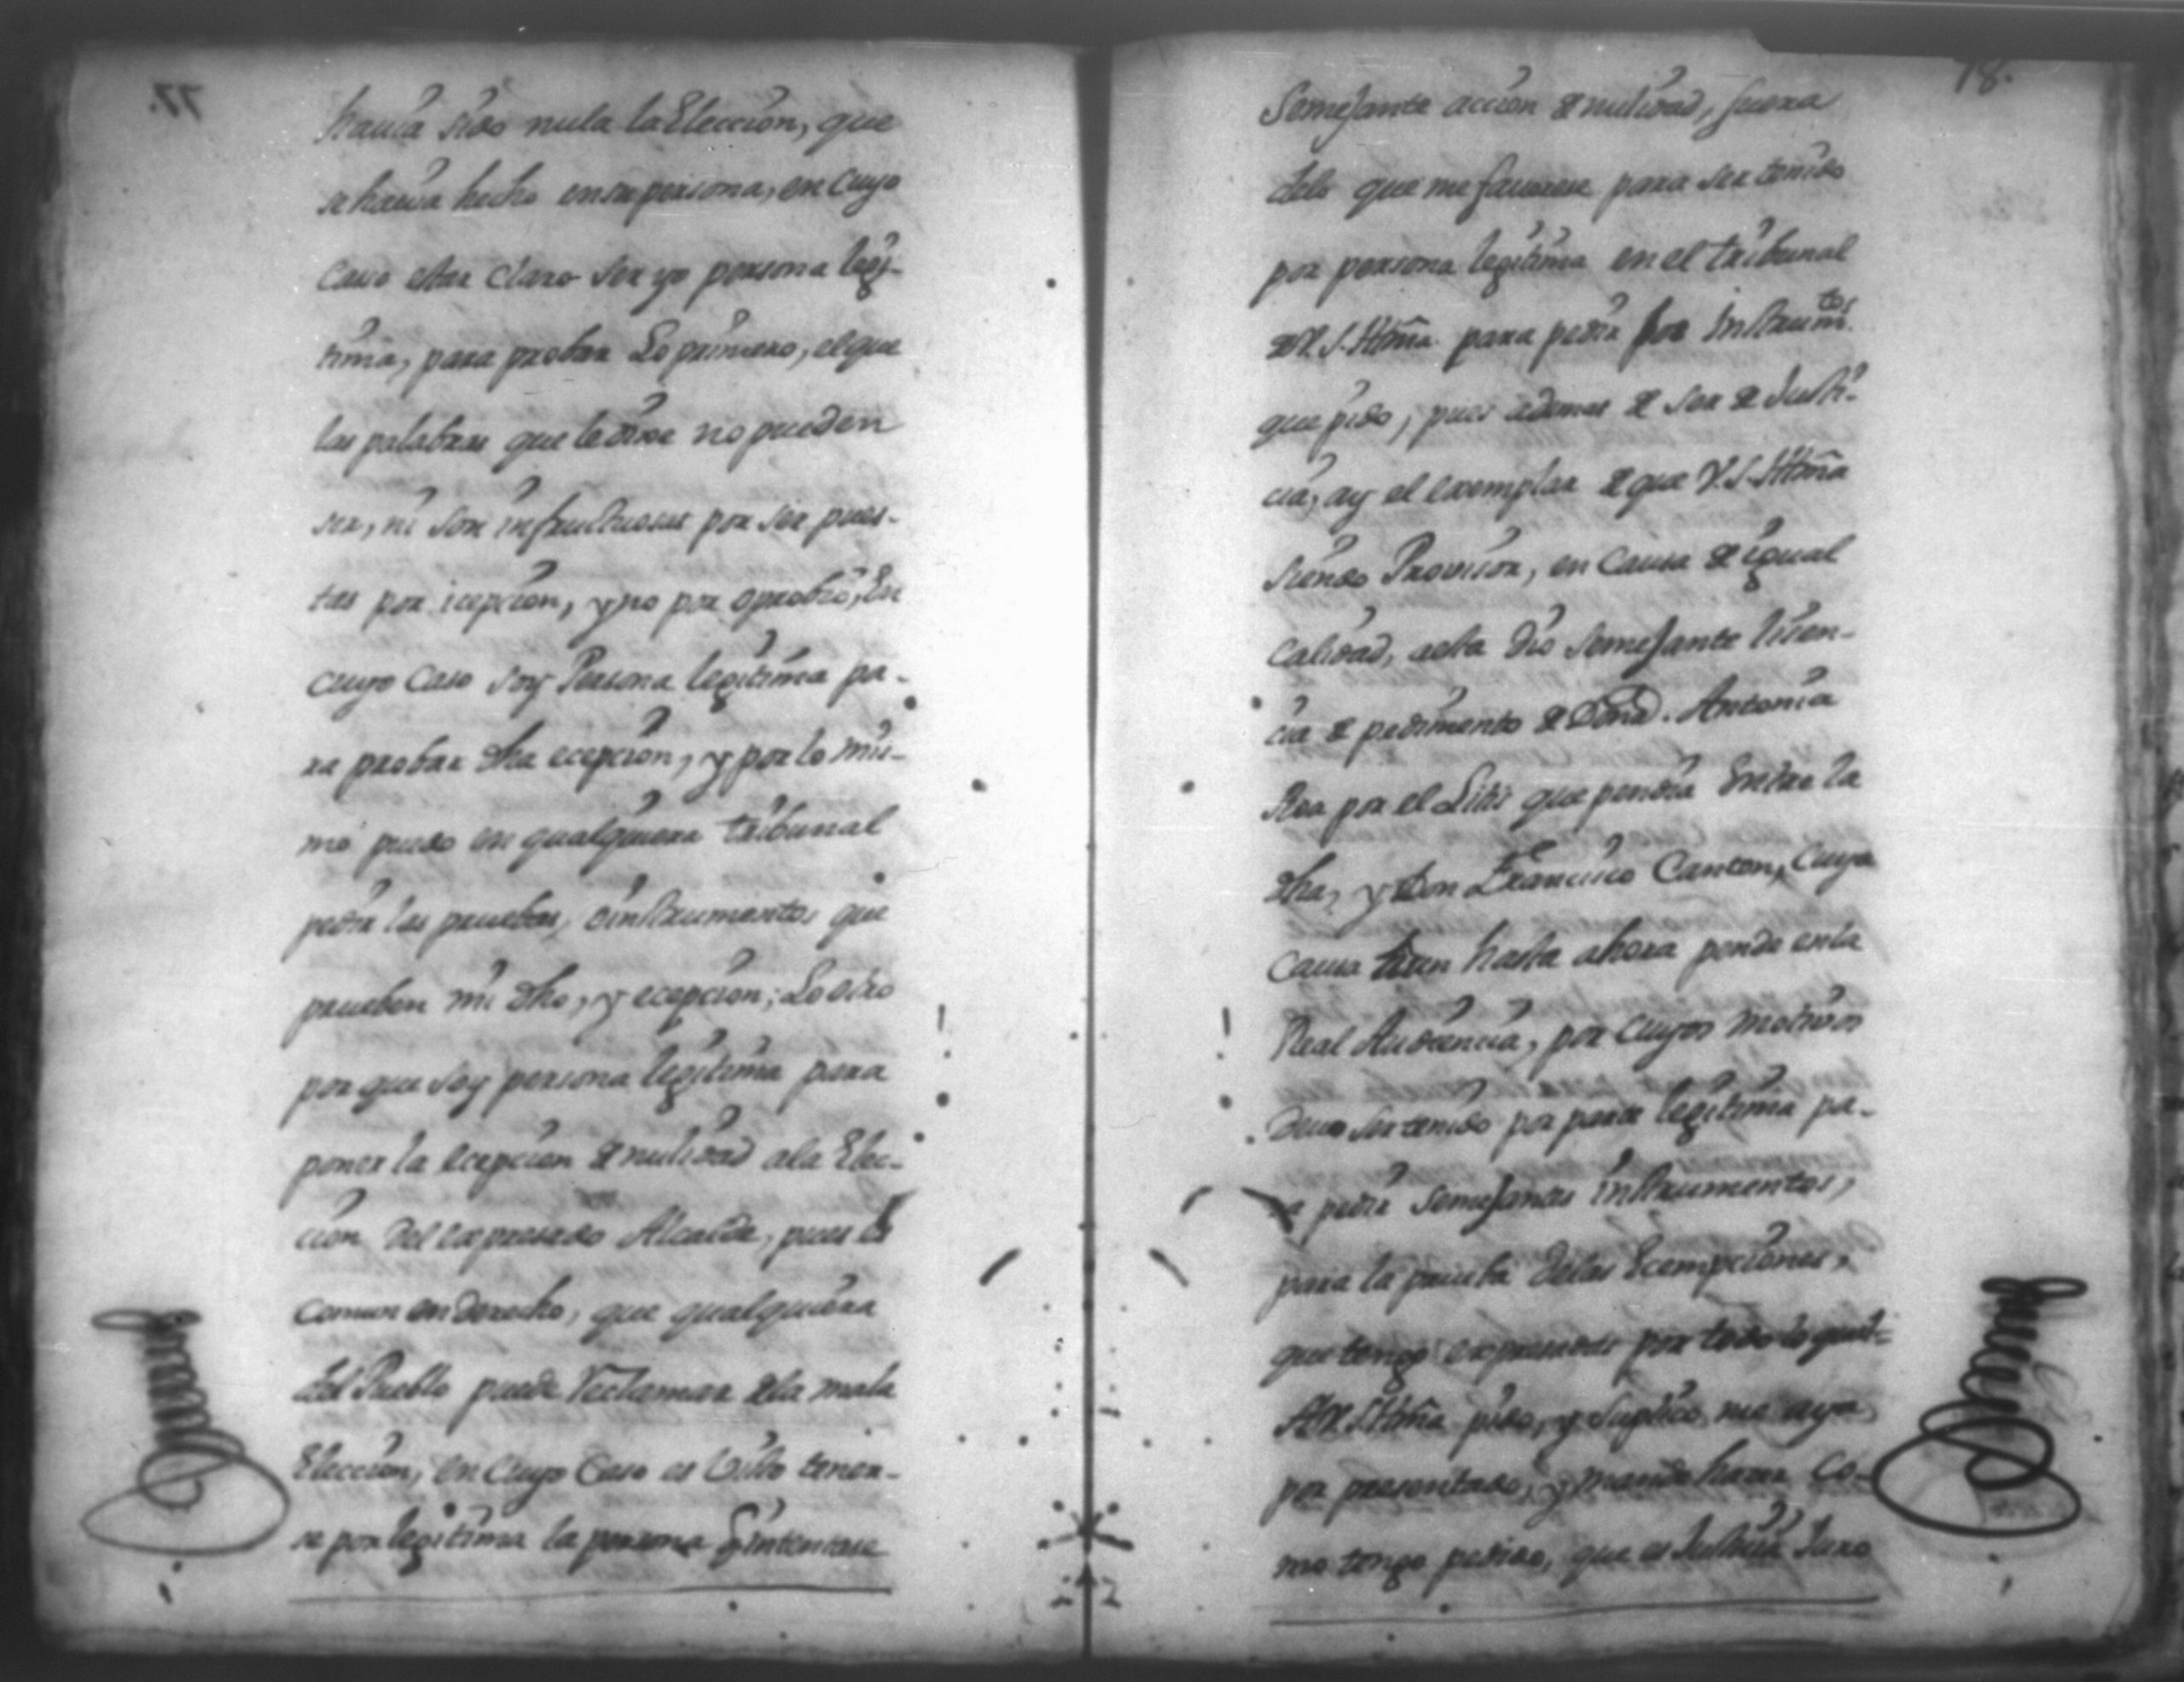 havia sido nula la Eleccion, que
se havia hecho en su persona, en cuyo
caso estar claro ser yo persona legi-
tima, para probar Lo primero, el que
las palabras que le dixe no pueden
ser, ni son infructuosas por ser pues-
tas por ecepcion, y no por oprobio, En
cuyo caso soy Persona legitima pa-
ra probar dha ecepcion, y por lo mis-
mo puedo en qualquiera tribunal
pedir las pruebas, o instrumentos que
prueben mi dho, y ecepcion; Lo otro
por que soy persona legitima para
poner la ecepcion de nulidad a la Elec-
cion del expresado Alcalde, pues es
comun en derecho, que qualquiera
del Pueblo puede Reclamar de la mala
Eleccion, en cuyo caso es visto tener-
se por legitima la persona q intentase
18.
Semejante accion de nulidad, fuera
delo que me favorese para ser tenido
por persona legitima en el tribunal
de V. S. Ittma. para pedir los Instrumtos.
que pido, pues ademas de ser de Justi-
cia, ay el exemplar de que V. S. Ittma
siendo Provisor, en causa de igual
calidad, aesta dio semejante licen-
cia de pedimento de Doña. Antonia
Roa por el Litis que pendia Entre la
dha, y Don Francisco Canton, cuya
causa hasta ahora pende en la
Real Audiencia, por cuyos motivos
devo ser tenido por parte legitima pa-
ra pedir semejantes instrumentos,
para la prueba delas Ecempciones,
que tengo expresadas por todo lo qual-
A V. S. Ittma pido, y suplico me aya
por presentado, y mande hacer co-
mo tengo pedido, que es Justicia Juro